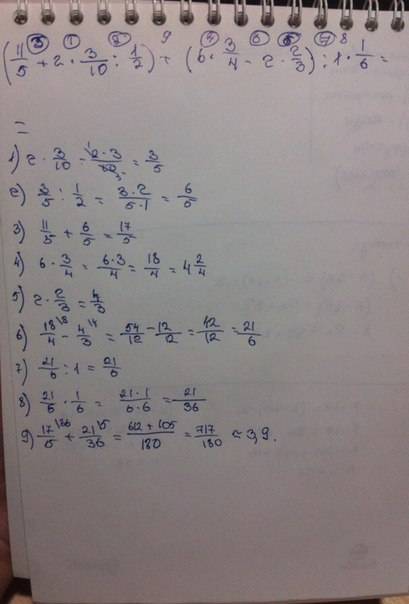 ③ ① ② 9 ④ ⑥ ⑤ ⑦ 8
(11/5 + 2 · 3/10 : 1/2) + (6 · 3/4 - 2 · 2/3) : 1 · 1/6 =
=
1) 2 · 3/10 = 2·3/10 = 3/5
2) 3/5 : 1/2 = 3·2/5·1 = 6/5
3) 11/5 + 6/5 = 17/5
4) 6 · 3/4 = 6·3/4 = 18/4 = 4 2/4
5) 2 · 2/3 = 4/3
6) 18/4 - 4/3 = 54/12 - 12/12 = 42/12 = 21/6
7) 21/6 : 1 = 21/6
8) 21/6 · 1/6 = 21·1/6·6 = 21/36
9) 17/5 + 21/36 = 612+105/180 = 717/180 ≈ 3,9.